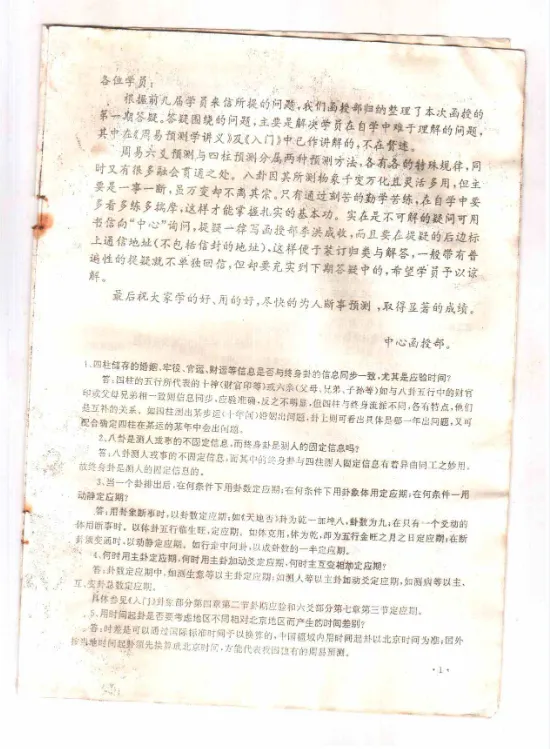 各位学员：
根据前几届学员来信所提的问题，我们函授部归纳整理了本次函授的
第一期答疑。答疑围绕的问题，主要是解决学员在自学中难于理解的问题，
其中在《周易预测学讲义》及《入门》中已作讲解的，不在赘述。
周易六爻预测与四柱预测分属两种预测方法，各有各的特殊规律，同
时又有很多融会贯通之处。八卦因其所测物象千变万化且灵活多用，但主
要是一事一断，虽万变却不离其宗。只有通过刻苦的勤学苦练，在自学中要
多看多练多揣摩，这样才能掌握扎实的基本功。实在是不可解的疑问可用
书信向“中心”询问，提疑一律写函授部李洪成收，而且要在提疑的后边标
上通信地址（不包括信封的地址），这样便于装订归类与解答，一般带有普
遍性的提疑就不单独回信，但却要充实到下期答疑中的，希望学员予以谅
解。
最后祝大家学的好、用的好，尽快的为人断事预测，取得显著的成绩。
中心函授部。
1.四柱储存的婚姻、牢役、官运、财运等信息是否与终身卦的信息同步一致，尤其是应验时间？
答：四柱的五行所代表的十神（财官印等）或六亲（父母、兄弟、子孙等）如与八卦五行中的财官
印或父母兄弟相一致则信息同步，应验准确，反之不明显，但四柱与终身流派不同，各有特点，他们
是互补的关系。如四柱测出某步运（十年间）婚姻出问题，卦上则可看出具体是哪一年出问题，又可
配合确定四柱在某运的某年中会出问题。
2、八卦是测人或事的不固定信息，而终身卦是测人的固定信息吗？
答：八卦测人或事的不固定信息，而其中的终身卦与四柱测人固定信息有着异曲同工之妙用，
故终身卦是测人的固定信息的。
3.当一个卦排出后，在何条件下用卦数定应期；在何条件下用卦象体用定应期；在何条件一用
动静定应期？
答：用卦象断事时，以卦数定应期；如《天地否》卦为乾一加坤八，卦数为九；在只有一个爻动的
体用断事时，以体卦五行临生旺，定应期。如体克用，体为乾，即为五行金旺之月之日定应期；在断
卦须变通时，以动静定应期。如行走中问卦，以成卦数的一半定应期。
4.何时用主卦定应期，何时用主卦加动爻定应期，何时主互变相加定应期？
答：卦数定应期中，如测生意等以主卦定应期；如测人等以主卦加动爻定应期，如测病等以主、
互、变卦总数定应期。
具体参见《入门》卦象部分第四章第二节卦期应验和六爻部分第七章第三节定应期。
5.用时间起卦是否要考虑地区不同相对北京地区而产生的时间差别？
答：时差是可以通过国际标准时间予以换算的，中国领域内用时间起卦以北京时间为准；国外
按当地时间起卦须先换算成北京时间，方能代表我国固有的周易预测。
·1·